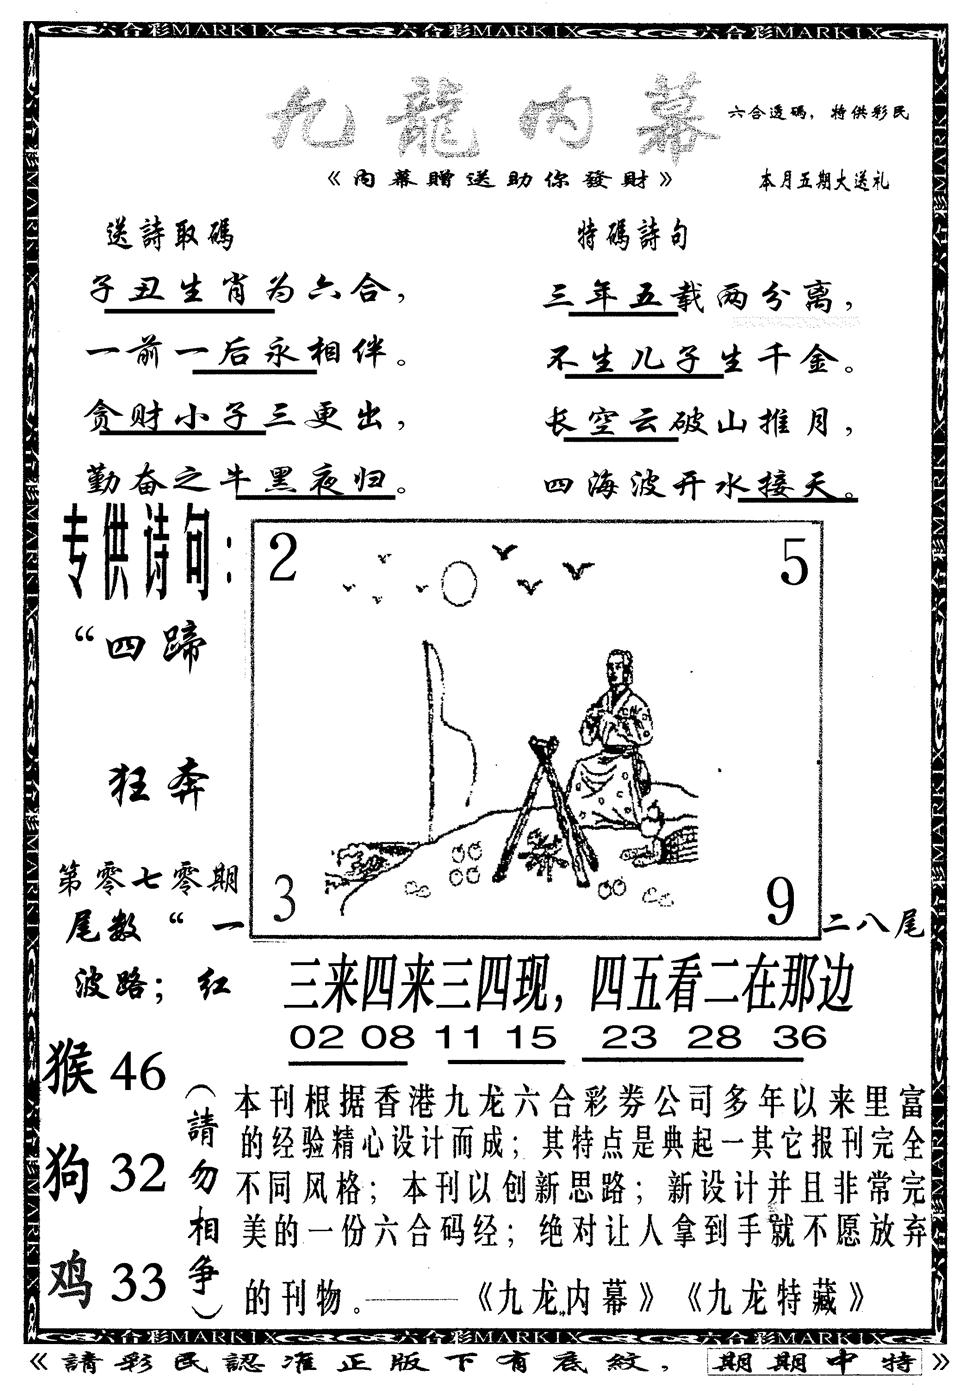 六合彩MARKIX 六合彩MARKIX 六合彩MARKIX
九龍内幕
六合透碼，特供彩民
《内幕贈送助你發財》
本月五期大送礼
送詩取碼
子丑生肖为六合，
一前一后永相伴。
贪财小子三更出，
勤奋之牛黑夜归。
特碼詩句
三年五载两分离，
不生儿子生千金。
长空云破山推月，
四海波开水接天。
专供诗句：
“四蹄
狂奔
第零七零期
尾数“一
二八尾
波路；红
2
5
3
9
三来四来三四现，四五看二在那边
02 08 11 15 23 28 36
猴 46
狗 32
鸡 33
（請勿相争）
本刊根据香港九龙六合彩券公司多年以来里富
的经验精心设计而成；其特点是典起一其它报刊完全
不同风格；本刊以创新思路；新设计并且非常完
美的一份六合码经；绝对让人拿到手就不愿放弃
的刊物。————《九龙内幕》《九龙特藏》
六合彩MARKIX 六合彩MARKIX 六合彩MARKIX
《請彩民認准正版下有底紋，期期中特》